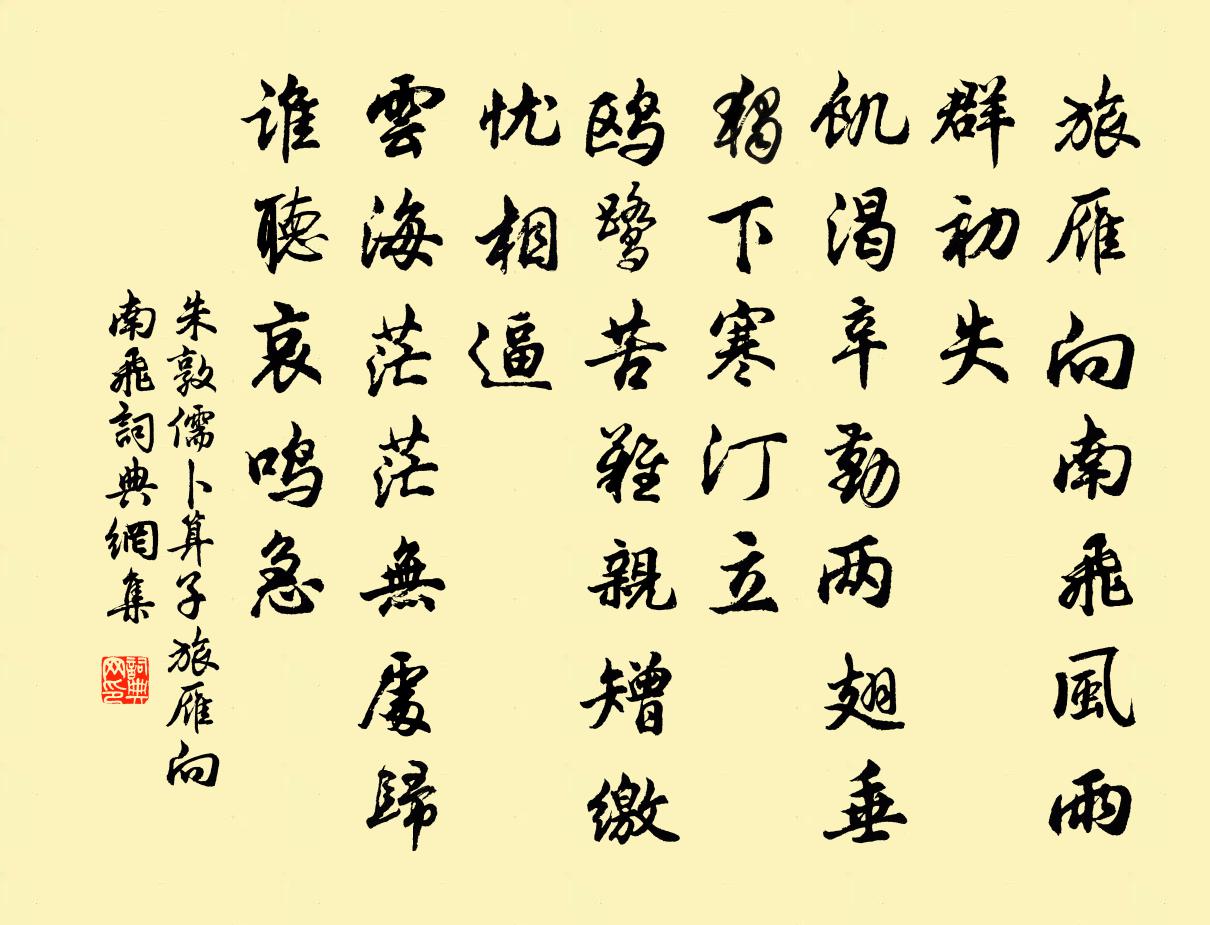 旅雁向南飛風雨
群初失
飢渴辛勤两翅垂
獨下寒汀立
鸥鹭苦難親矰缴
忧相逼
雲海茫茫無處歸
誰聽哀鸣急
朱敦儒卜算子旅雁向
南飛詞典網集
詞典
网印